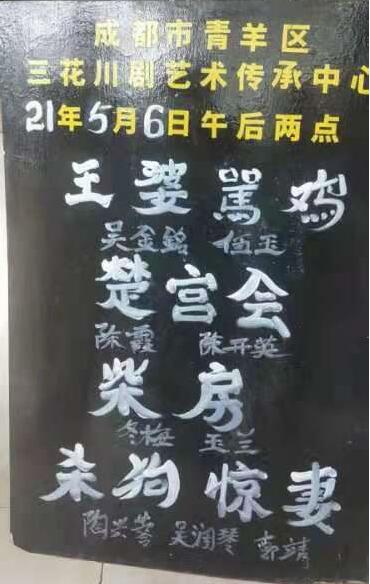 成都市青羊区
三花川剧艺术传承中心
21年5月6日午后两点
王婆骂鸡
吴金铭 伍玉
楚宫会
陈霞 陈开英
柴房
冬梅 玉兰
杀狗惊妻
吴润琴 郭靖